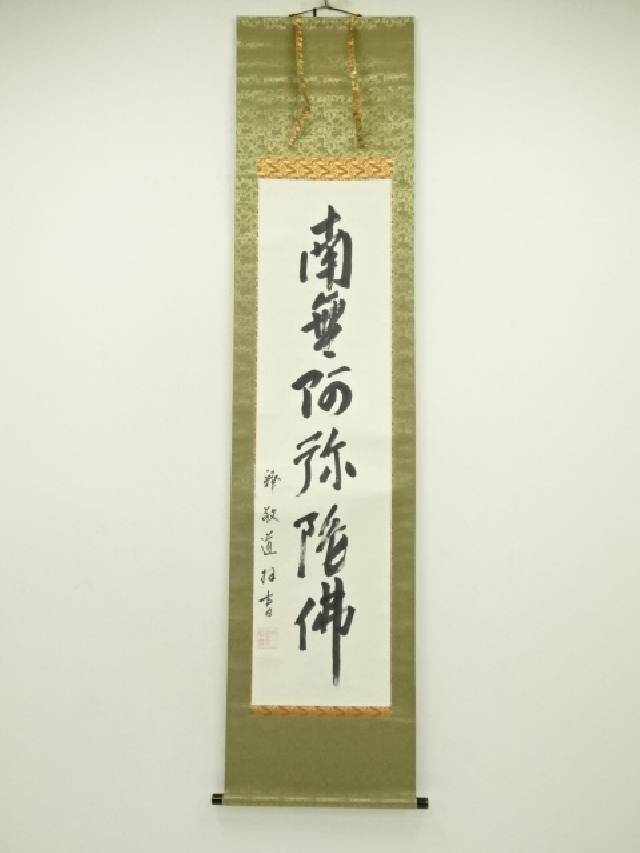 南無阿弥陀佛
釋敬道拝書